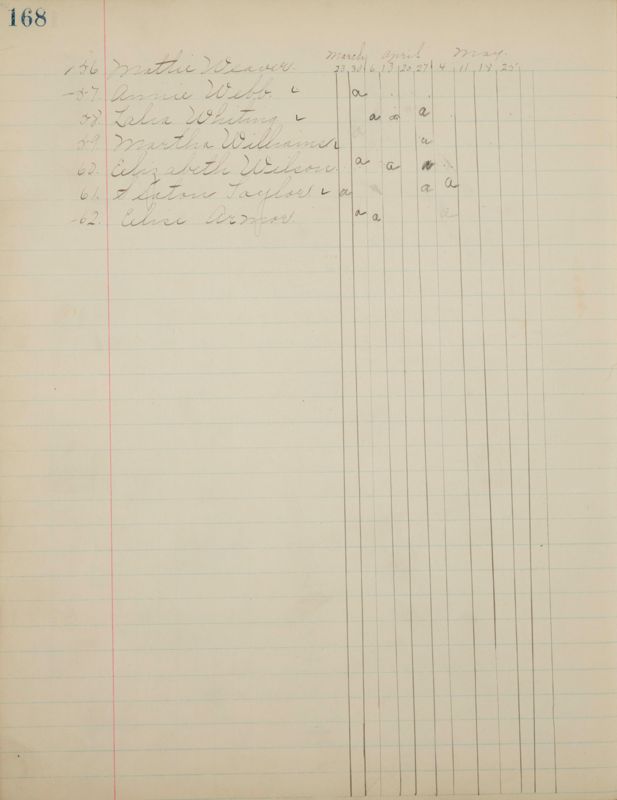 168
March April May
23 30 6 13 20 27 4 11 18 25
56 Mattie Weaver
57. Annie Webb a
58. Lelia Whiting a a a
59 Martha Williams a
60. Elizabeth Wilson a a a
61. Seaton Taylor a a a
62. Elise Armor a a a